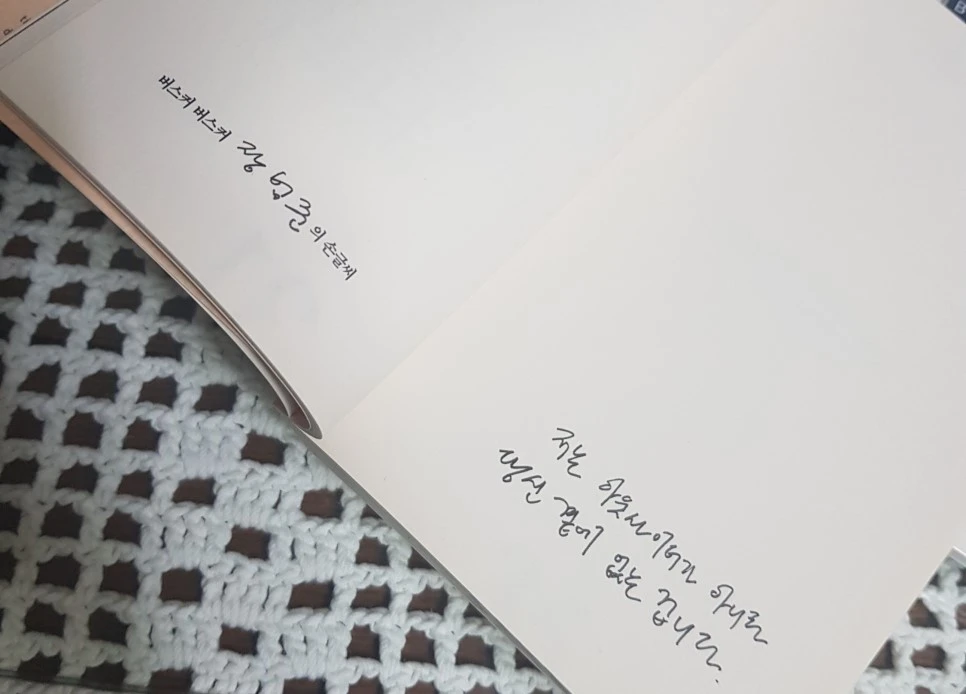 버스커 버스커 장범준의 손글씨
아웃사이더가 아니라
당신 곁에 겁니다.